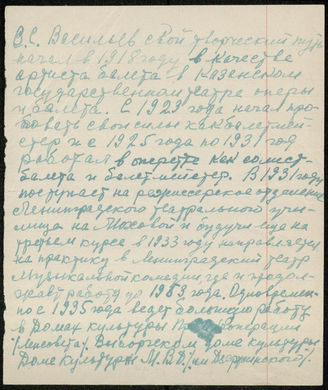 В.С. Васильев свой творческий путь
начал в 1918 году в качестве
артиста балета в Казанском
государственном театре оперы
и балета. С 1923 года начал про-
бовать свои силы как балетмей-
стер и с 1925 года по 1931 год
работал в оперетте как солист
балета и балетмейстер. В 1931 году
поступает на режиссерское отделение
Ленинградского театрального учи-
лища на Моховой и будучи еще на
третьем курсе в 1933 году направляется
на практику в Ленинградский театр
музыкальной комедии, где и продол-
жает работу до 1953 года. Одновремен-
но с 1935 года ведет большую работу
в Домах культуры
Ленсовета, Выборгском доме культуры
Доме культуры М.В.Д. им Дзержинского.